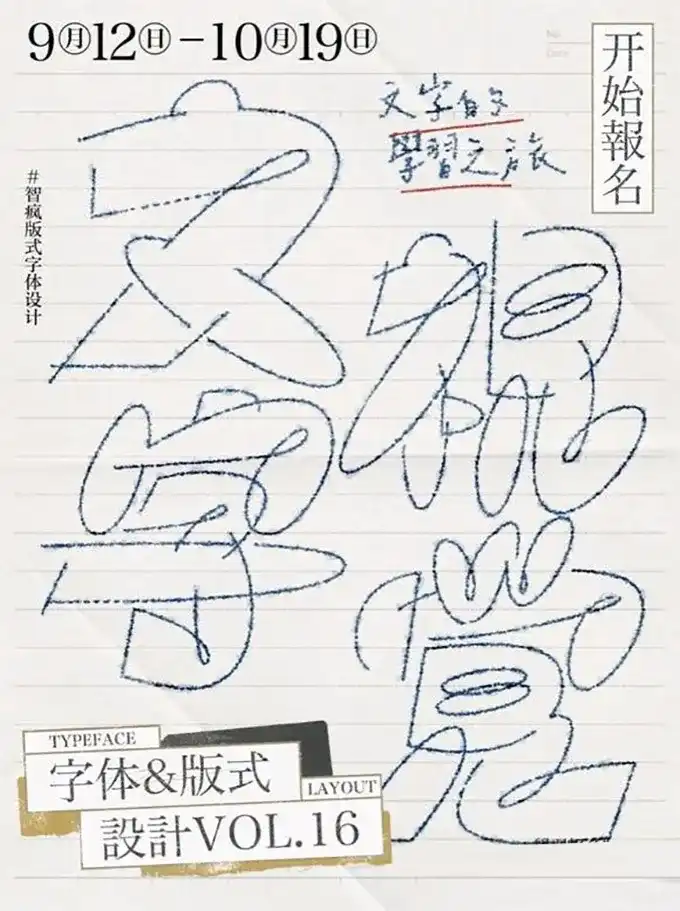 9月12日-10月19日
开始報名
文字的
學習之旅
#智疯版式字体设计
文字
視覺
TYPEFACE
字体&版式
LAYOUT
設計VOL.16